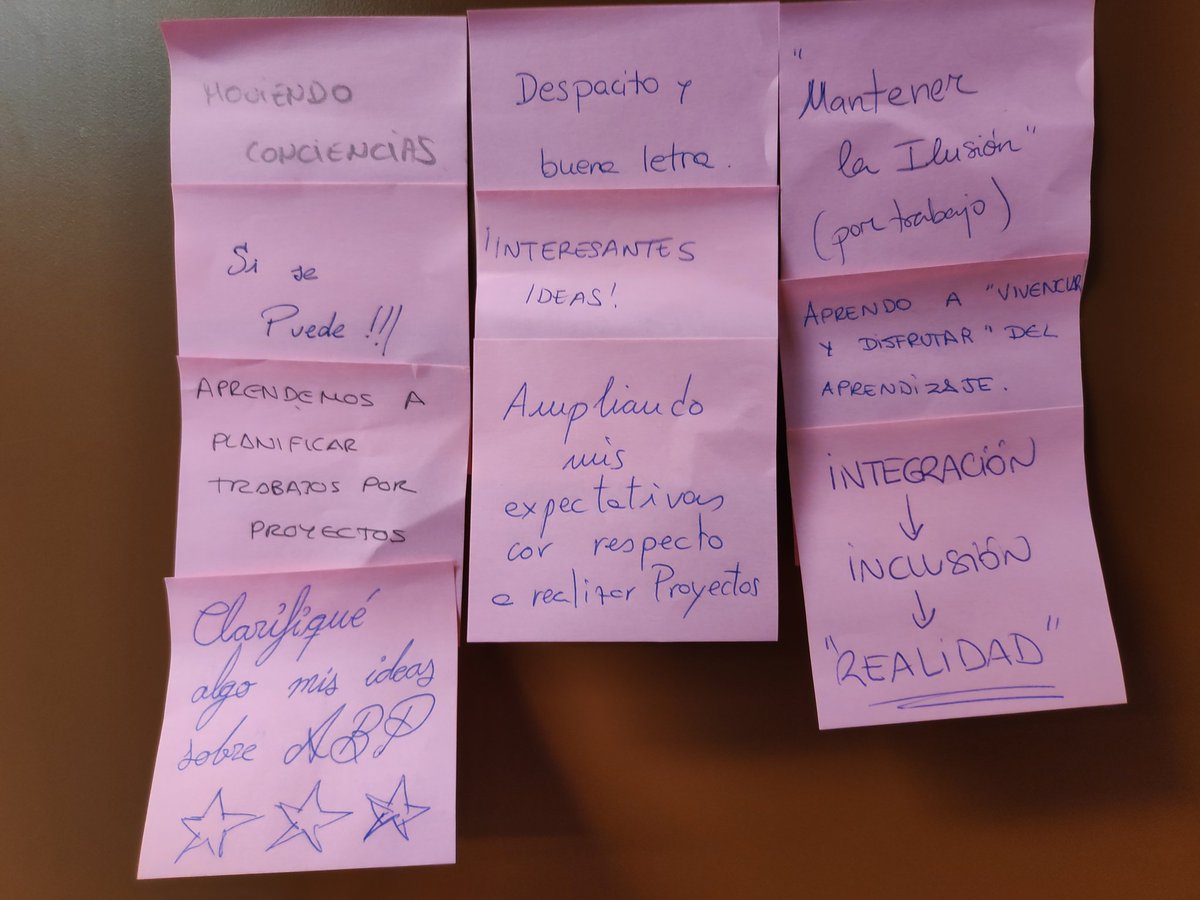 MOVIENDO
CONCIENCIAS
Si se
Puede !!!
APRENDEMOS A
PLANIFICAR
TRABAJOS POR
PROYECTOS
Clarifiqué
algo mis ideas
sobre ABP
Despacito y
buena letra.
¡INTERESANTES
IDEAS!
Ampliando
mis
expectativas
con respecto
a realizar Proyectos
"Mantener
la Ilusión"
(por trabajo)
APRENDO A "VIVENCIAR
Y DISFRUTAR" DEL
APRENDIZAJE.
INTEGRACIÓN
↓
INCLUSIÓN
↓
"REALIDAD"